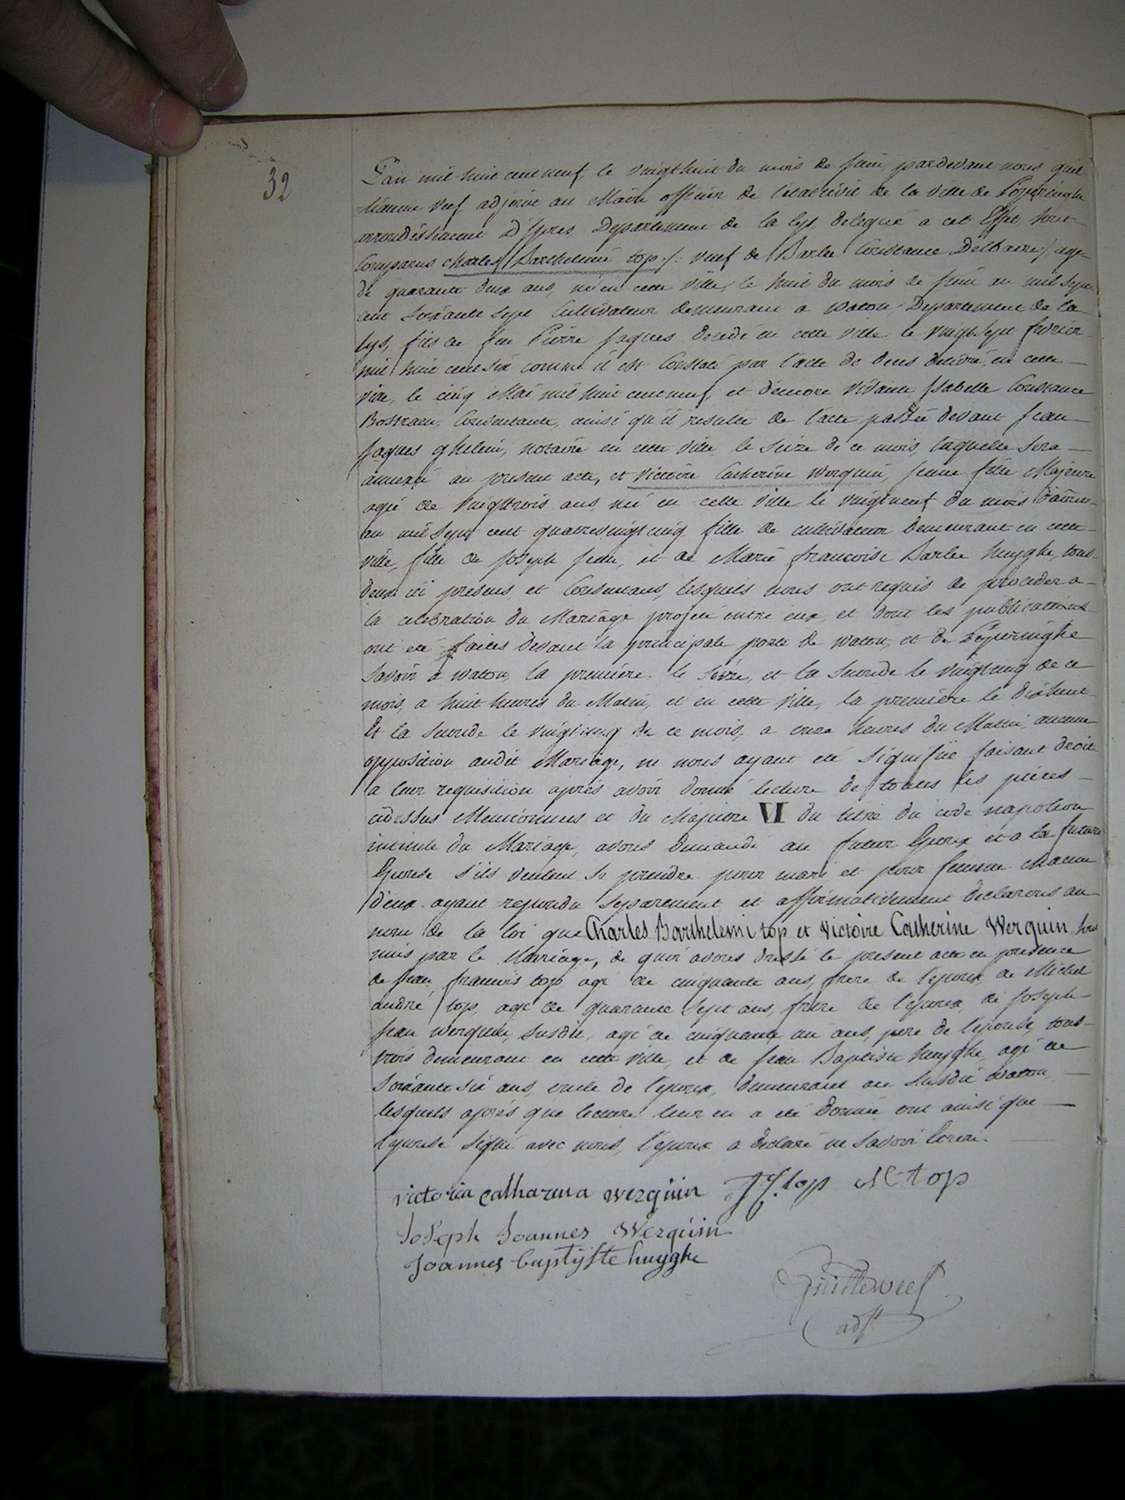 32
L'an mil huit cent neuf, le vingthuit du mois de juin, pardevant nous guil
liaume Veef adjoint au Maire officier de l'etat civil de la ville de Poperinghe
arrondissement D'Ypres Departement de la Lys delegué a cet Effet, sont
Comparus Charles Barthelemi top /: veuf de Barbe Constance Delbaere :/ age
de quarante deux ans, né en cette ville, le huit du mois de juin an mil sept
cent soixante sept Cultivateur demeurant a watou, Departement de la
Lys, fils de feu Pierre Jaques decedé en cette ville le vingt sept fevrier
mil huit cent six comme il est Constaté par l'acte de deces delivré en cette
ville, le cinq Mai mil huit cent neuf, et d'encore vivante Isabelle Constance
Consentante, ainsi qu'il resulte de l'acte passée devant Jean
Jaques ghelein, notaire en cette ville le seize de ce mois, laquelle sera
annexée au present acte, et Victoire Catherine Werquin, jeune fille Majeure
agée de vingttrois ans née en cette ville le vingtneuf du mois
an mil sept cent quatrevingt cinq fille de cultivateur demeurant en cette
ville, fille de Joseph Jean, et de Marie francoise Barbe huyghe, tous
deux ici presens, et Consentans, lesquels nous ont requis de proceder a
la celebration du Mariage projeté entre eux, et dont les publications
ont été faites devant la principale porte de watou, et de Poperinghe
savoir à watou, la premiere le seize, et la seconde le vingtcinq de ce
mois, a huit heures du Matin, et en cette ville, la premiere le dixhuit
Et la seconde le vingtcinq de ce mois, a onze heures du Matin, aucune
opposition audit Mariage, ne nous ayant été signifiée faisant droit
a leur requisition après avoir donné lecture de toutes les pièces
cidessus Mentionnees et du chapitre VI du titre du code napoleon
intitulé du Mariage, avons demandé au futur Epoux et a la future
Epouse s'ils veulent se prendre pour mari et pour femme chacun
d'eux ayant repondu separement et affirmativement declarons au
nom de la loi que Charles Barthelemi top et Victoire Catherine Werquin sont
unis par le Mariage, de quoi avons dressé le present acte en presence
de Jean francois top agé de cinquante ans, frere de l'epoux, de Michel
andré top, agé de quarante sept ans, frere de l'epoux, de Joseph
Jean Werquin, susdit, agé de cinquante un ans, pere de l'epouse, tous
trois demeurant en cette ville, et de Jean Baptiste huyghe, agé de
soixante six ans, oncle de l'epoux, demeurant au susdit watou,
lesquels après que lecture leur en a été donnée ont ainsi que
l'epouse signé avec nous, l'epoux a declaré ne savoir Ecrire.
victoria catharina werquin J F top M A top
Joseph Joannes Werquin
Joannes baptiste huyghe
Guill Veef
adjt